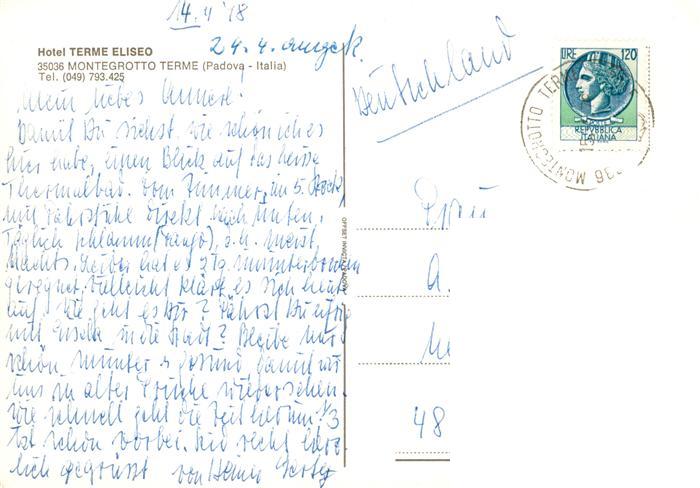 14.4.78
24.4. angek.
Hotel TERME ELISEO
35036 MONTEGROTTO TERME (Padova - Italia)
Tel. (049) 793.425
Deutschland
LIRE 120
REPVBBLICA
ITALIANA
MONTEGROTTO TERME
Mein liebes
Damit Du siehst, wie schön ich es
hier habe, einen Blick auf das heisse
Thermalbad. Vom Zimmer, im 5. Stock
mit Fahrstuhl direkt nach unten.
Täglich Schlamm (Fango), d.h. meist
Nachts. Leider hat es z.Tg. ununterbrochen
geregnet, vielleicht klärt es sich heute
auf. Wie geht es Dir? Fährst Du
mit Gisela in die Stadt? Bleibe nur
schön munter u. gesund, damit wir
uns in alter Frische wiedersehen.
Wie schnell geht die Zeit herum. 1/3
ist schon vorbei. Sei recht herz-
lich gegrüsst von Deiner
OFFSET
Frau
A.
48